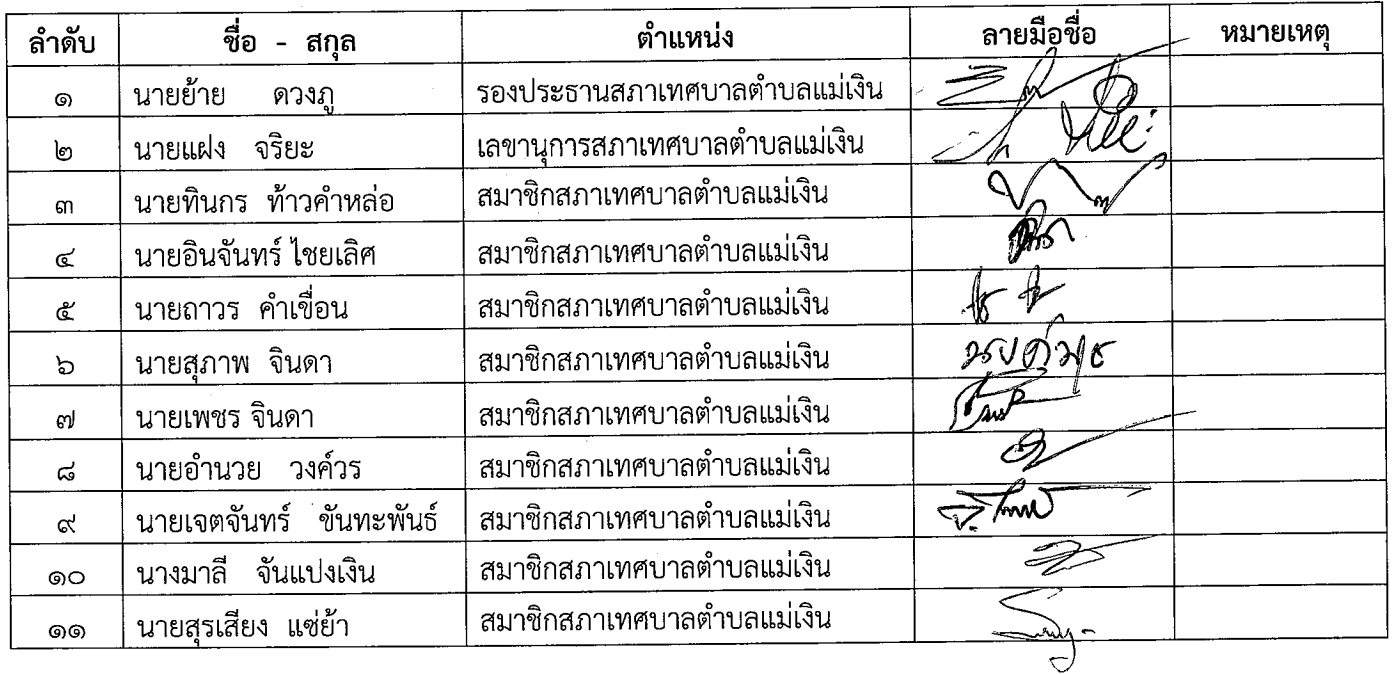 ลำดับ ชื่อ - สกุล ตำแหน่ง ลายมือชื่อ หมายเหตุ
๑ นายย้าย ดวงภู รองประธานสภาเทศบาลตำบลแม่เงิน
๒ นายแฝง จริยะ เลขานุการสภาเทศบาลตำบลแม่เงิน
๓ นายทินกร ท้าวคำหล่อ สมาชิกสภาเทศบาลตำบลแม่เงิน
๔ นายอินจันทร์ ไชยเลิศ สมาชิกสภาเทศบาลตำบลแม่เงิน
๕ นายถาวร คำเขื่อน สมาชิกสภาเทศบาลตำบลแม่เงิน
๖ นายสุภาพ จินดา สมาชิกสภาเทศบาลตำบลแม่เงิน
๗ นายเพชร จินดา สมาชิกสภาเทศบาลตำบลแม่เงิน
๘ นายอำนวย วงค์วร สมาชิกสภาเทศบาลตำบลแม่เงิน
๙ นายเจตจันทร์ ขันทะพันธ์ สมาชิกสภาเทศบาลตำบลแม่เงิน
๑๐ นางมาลี จันแปงเงิน สมาชิกสภาเทศบาลตำบลแม่เงิน
๑๑ นายสุรเสียง แซ่ย้า สมาชิกสภาเทศบาลตำบลแม่เงิน